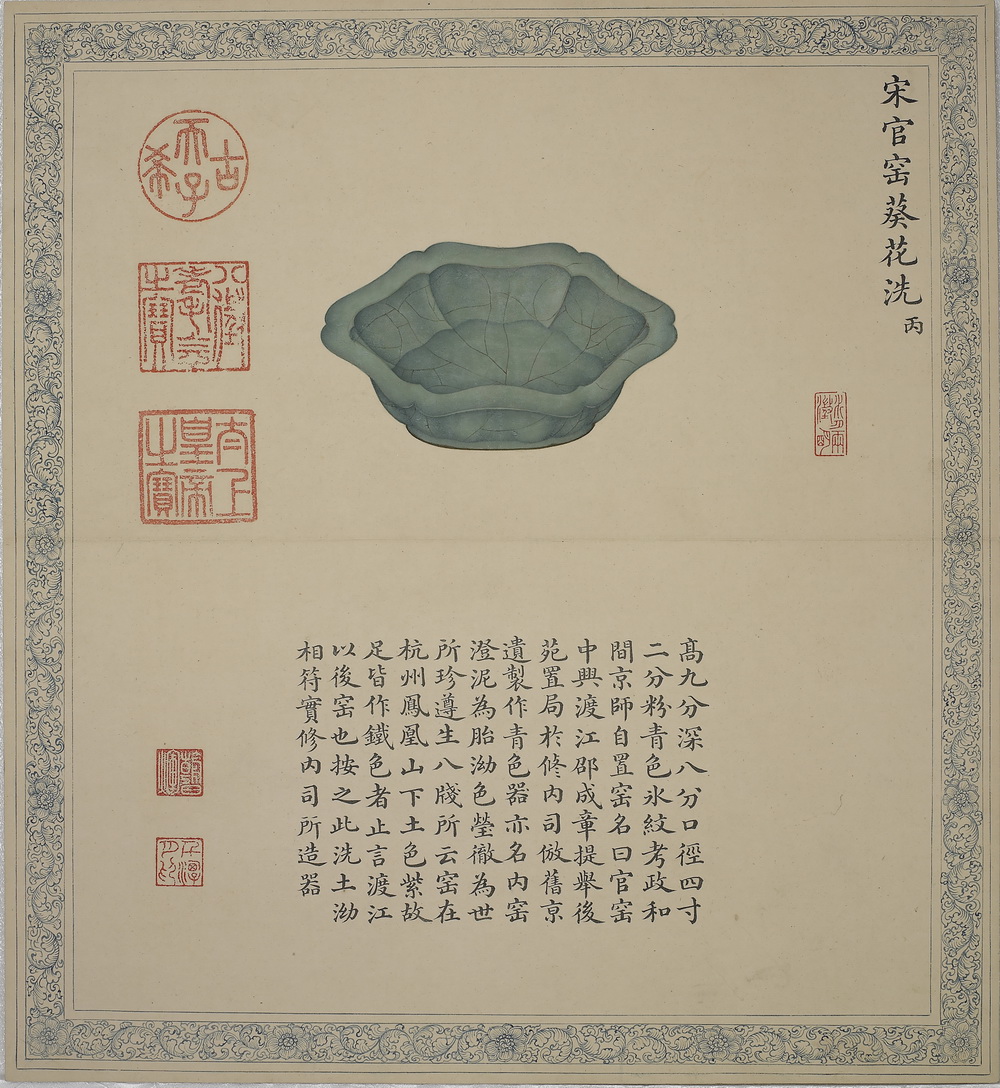 宋官窑葵花洗 丙
髙九分深八分口徑四寸
二分粉青色氷紋考政和
間京師自置窑名曰官窑
中興渡江邵成章提舉後
苑置局於修内司倣舊京
遺製作青色器亦名内窑
澄泥為胎泑色瑩徹為世
所珍遵生八牋所云窑在
杭州鳳凰山下土色紫故
足皆作鐵色者止言渡江
以後窑也按之此洗土泑
相符實修内司所造器
古希天子
八徵耄念之寶
太上皇帝之寶